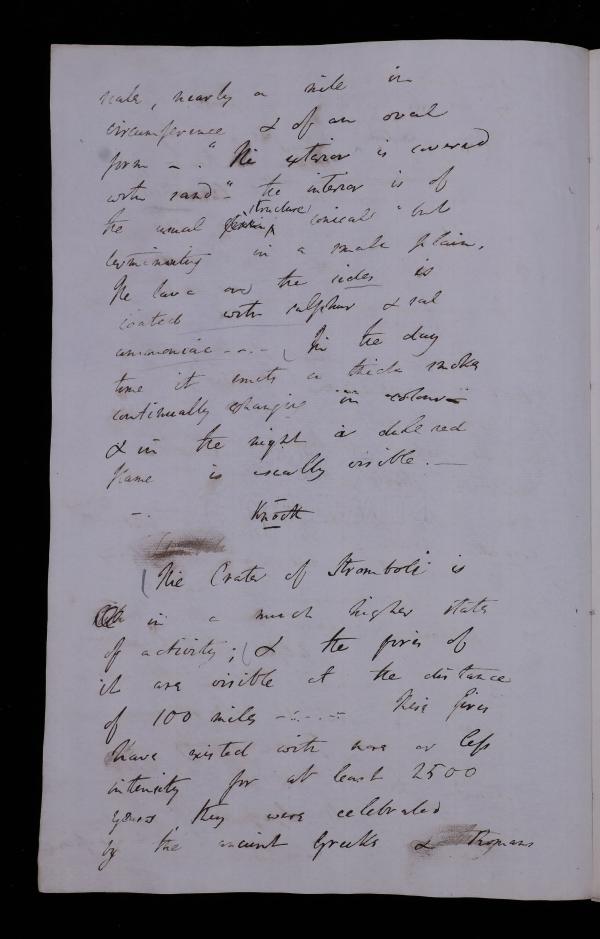 scale, nearly a mile in
circumference & of an oval
form - . "The exterior is covered
with sand" - the interior is of
the usual structure conical " but
terminating in a small plain.
The lava on the sides is
coated with sulphur & sal
ammoniac - - . - In the day
time it emits a thick smoke
continually changing "in colour"
& in the night a dull red
flame is usually visible. —
- .
The Crater of Stromboli is
in a much higher state
of activity; & the fires of
it are visible at the distance
of 100 miles - . - . - . - These fires
have existed with more or less
intensity for at least 2500
years They were celebrated
by the ancient Greeks & Romans